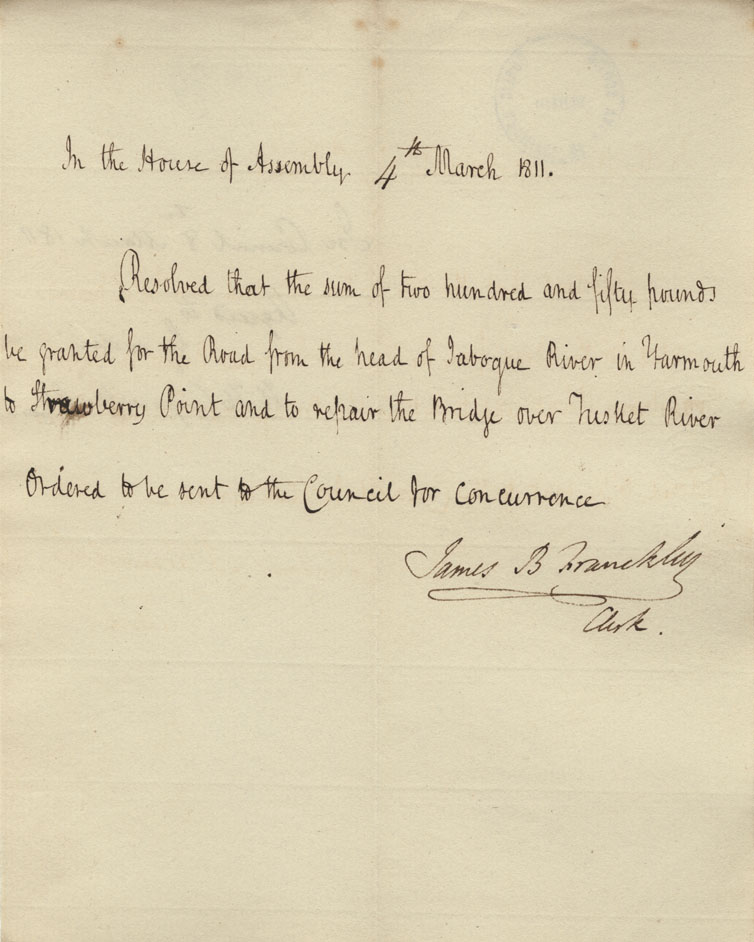 In the House of Assembly 4th March 1811.
Resolved that the sum of two hundred and fifty pounds
be granted for the Road from the head of Jaboque River in Yarmouth
to Strawberry Point and to repair the Bridge over Tusket River
Ordered to be sent to the Council for Concurrence
James B Franckling
Clerk.